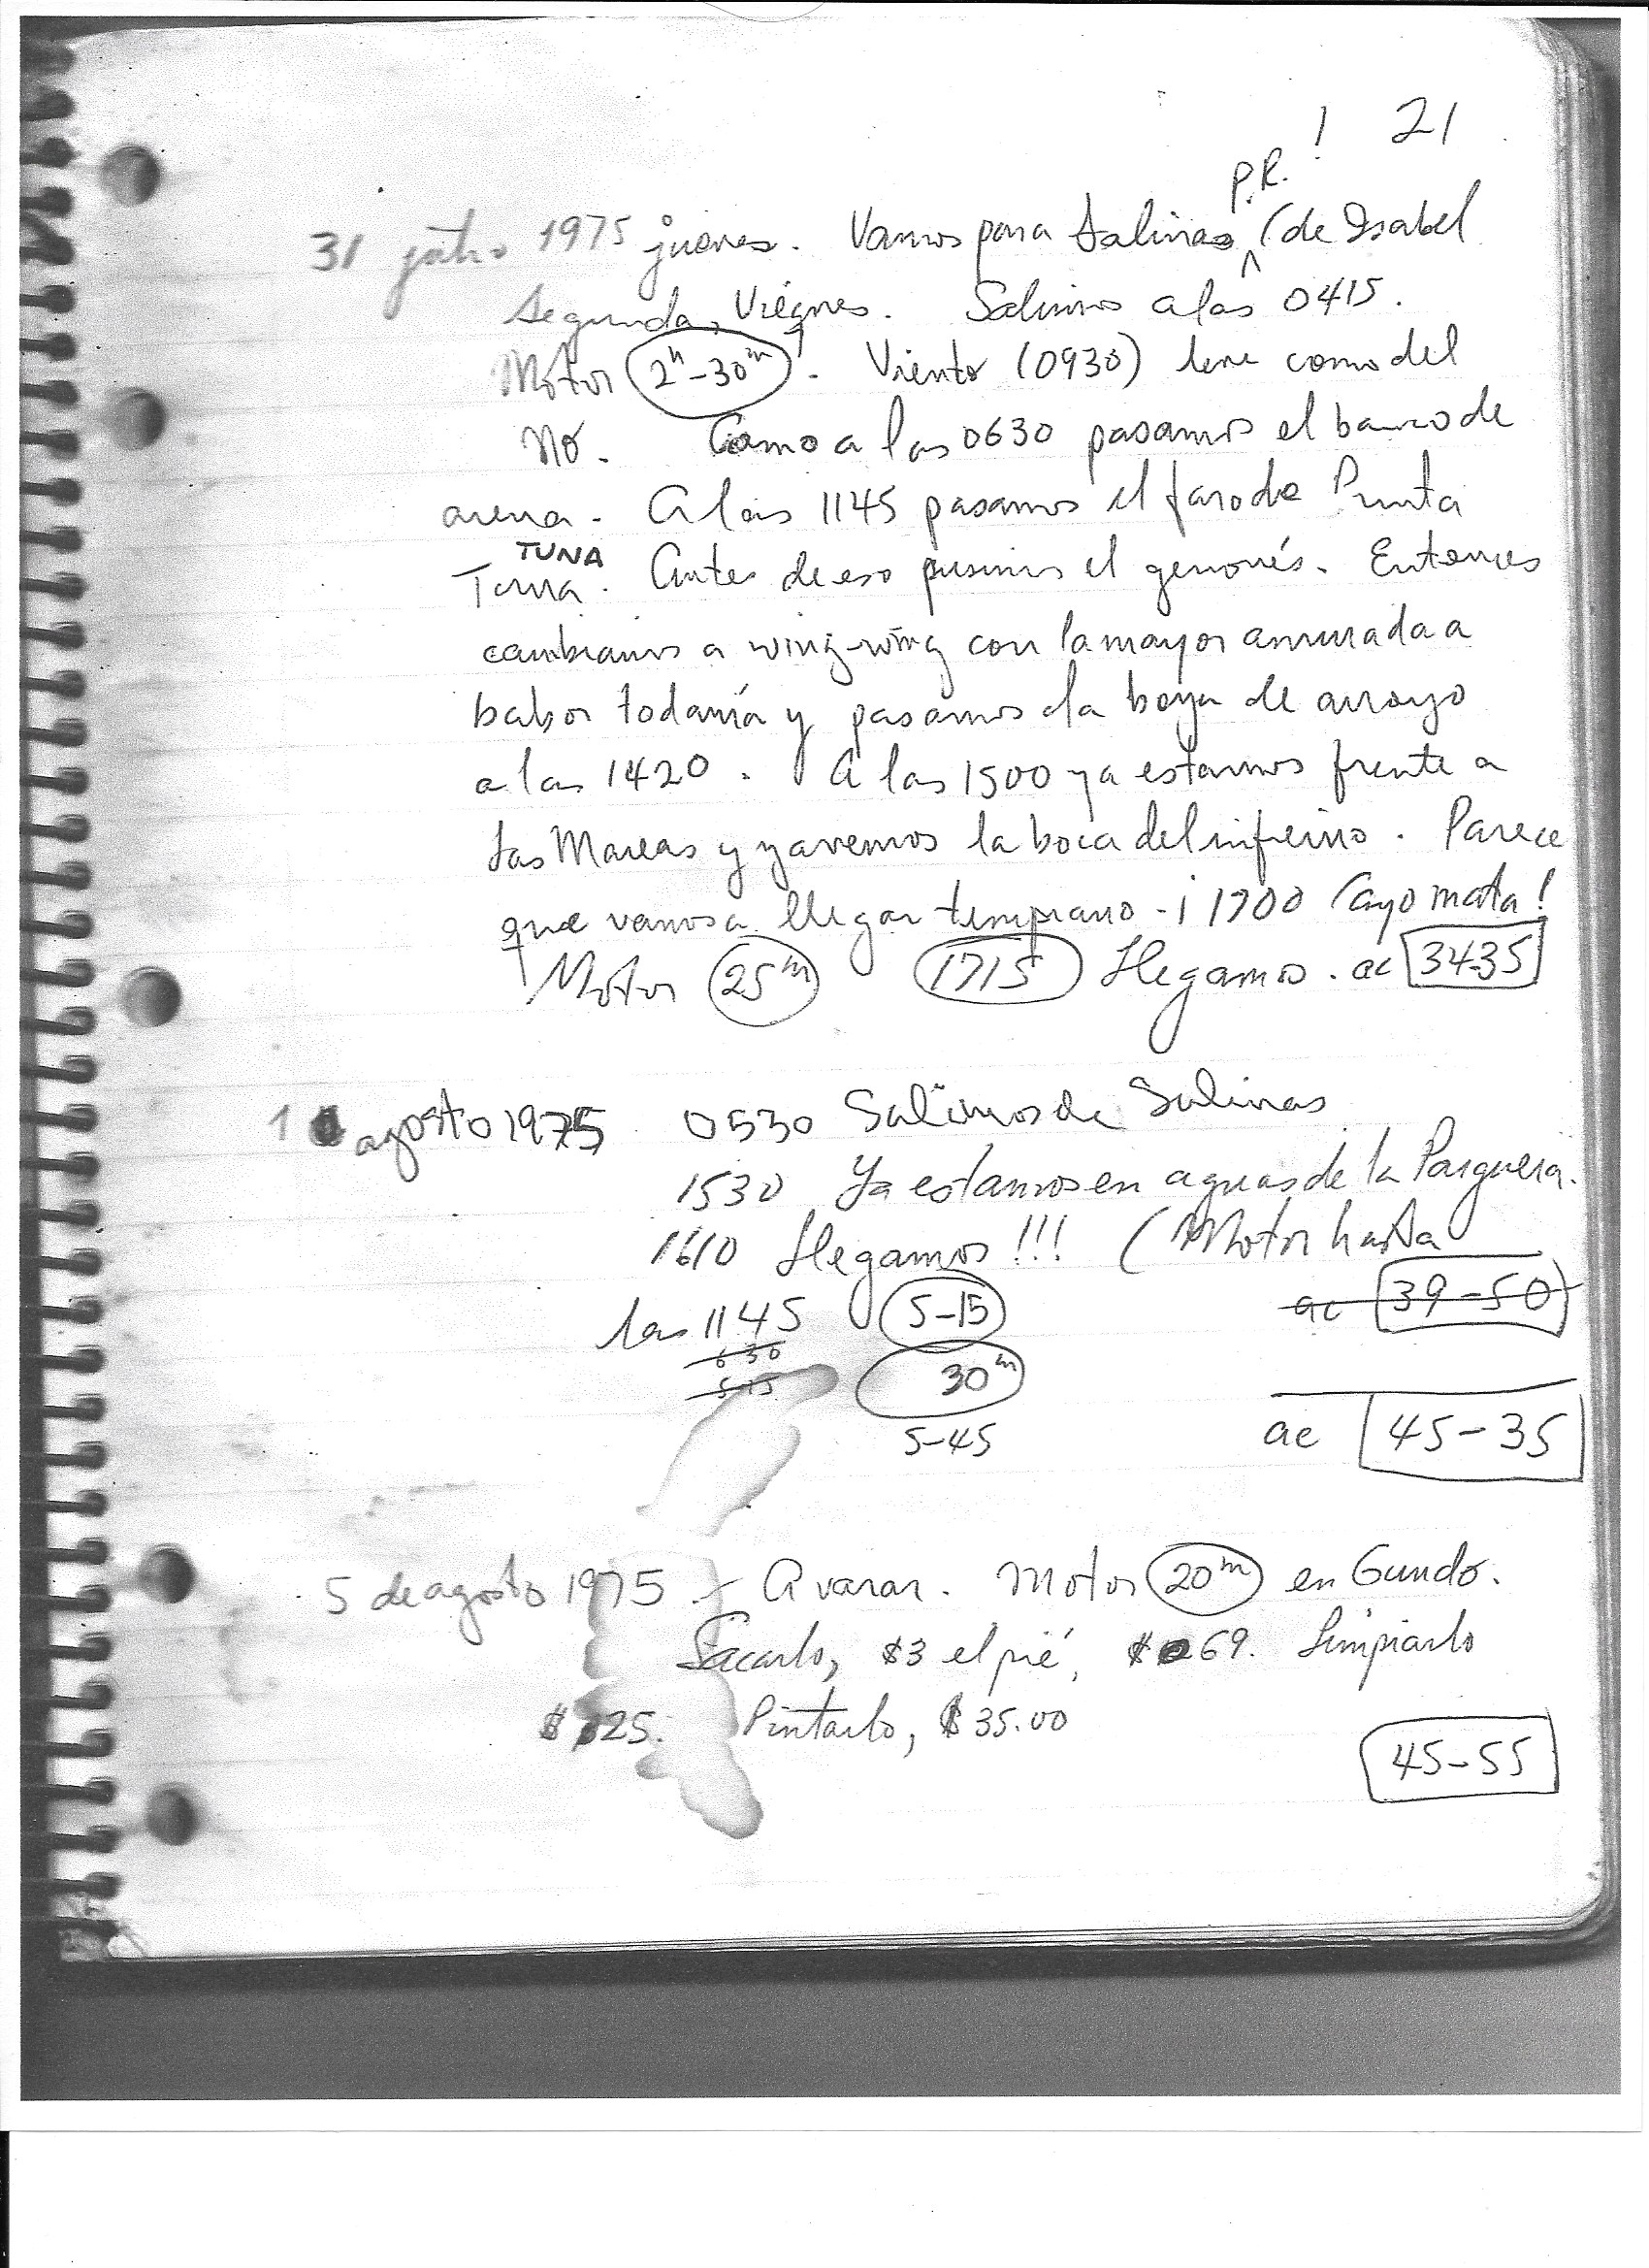 ! 21
P.R.
31 julio 1975 jueves. Vamos para Salinas (de Isabel
Segunda, Vieques. Salimos a las 0415.
Motor 2h-30m). Viento (0930) leve como del
NO. Como a las 0630 pasamos el banco de
arena. A las 1145 pasamos el faro de Punta
TUNA
Tuna. Antes de eso pusimos el genovés. Entonces
cambiamos a wing-wing con la mayor amurada a
babor todavía y pasamos la boya de arroyo
a las 1420. A las 1500 ya estamos frente a
Las Mareas y ya vemos la boca del infierno. Parece
que vamos a llegar temprano - ¡1700 Cayo mata!
Motor 25m 1715 Llegamos. ac 34-35
1 agosto 1975 0530 Salimos de Salinas
1530 Ya estamos en aguas de la Parguera.
1610 Llegamos!!! (Motor hasta
las 1145 5-15 ac 39-50
630
5-15 30m
5-45 ac 45-35
5 de agosto 1975 - A varar. Motor 20m en Gundo.
Sacarlo, $3 el pié, $69. Limpiarlo
$25. Pintarlo, $35.00
45-55